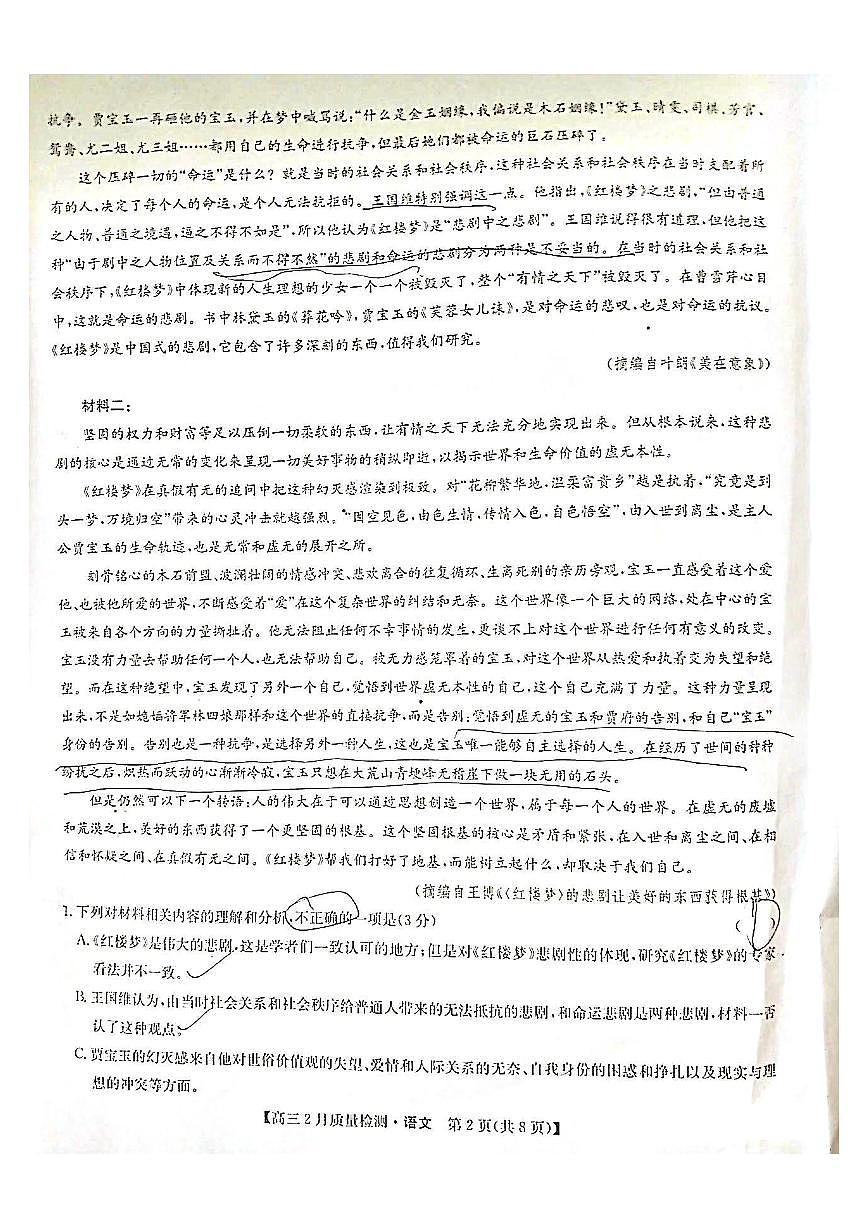 抗争。贾宝玉一再砸他的宝玉,并在梦中喊骂说:“什么是金玉姻缘,我偏说是木石姻缘!”黛玉、晴雯、司棋、芳官、
鸳鸯、尤二姐、尤三姐……都用自己的生命进行抗争,但最后她们都被命运的巨石压碎了。
这个压碎一切的“命运”是什么?就是当时的社会关系和社会秩序,这种社会关系和社会秩序在当时支配着所
有的人,决定了每个人的命运,是个人无法抗拒的。王国维特别强调这一点。他指出,《红楼梦》之悲剧,“但由普通
之人物、普通之境遇,逼之不得不如是”,所以他认为《红楼梦》是“悲剧中之悲剧”。王国维说得很有道理,但他把这
种“由于剧中之人物位置及关系而不得不然”的悲剧和命运的悲剧分为两种是不妥当的。在当时的社会关系和社
会秩序下,《红楼梦》中体现新的人生理想的少女一个一个被毁灭了,整个“有情之天下”被毁灭了。在曹雪芹心目
中,这就是命运的悲剧。书中林黛玉的《葬花吟》,贾宝玉的《芙蓉女儿诔》,是对命运的悲叹,也是对命运的抗议。
《红楼梦》是中国式的悲剧,它包含了许多深刻的东西,值得我们研究。
(摘编自叶朗《美在意象》)
材料二:
坚固的权力和财富等足以压倒一切柔软的东西,让有情之天下无法充分地实现出来。但从根本说来,这种悲
剧的核心是通过无常的变化来呈现一切美好事物的稍纵即逝,以揭示世界和生命价值的虚无本性。
《红楼梦》在真假有无的追问中把这种幻灭感渲染到极致。对“花柳繁华地,温柔富贵乡”越是执着,“究竟是到
头一梦,万境归空”带来的心灵冲击就越强烈。“因空见色,由色生情,传情入色,自色悟空”,由入世到离尘,是主人
公贾宝玉的生命轨迹,也是无常和虚无的展开之所。
刻骨铭心的木石前盟、波澜壮阔的情感冲突、悲欢离合的往复循环、生离死别的亲历旁观,宝玉一直感受着这个爱
他、也被他所爱的世界,不断感受着“爱”在这个复杂世界的纠结和无奈。这个世界像一个巨大的网络,处在中心的宝
玉被来自各个方向的力量撕扯着。他无法阻止任何不幸事情的发生,更谈不上对这个世界进行任何有意义的改变。
宝玉没有力量去帮助任何一个人,也无法帮助自己。被无力感笼罩着的宝玉,对这个世界从热爱和执着变为失望和绝
望。而在这种绝望中,宝玉发现了另外一个自己,觉悟到世界虚无本性的自己,这个自己充满了力量。这种力量呈现
出来,不是如姽婳将军林四娘那样和这个世界的直接抗争,而是告别:觉悟到虚无的宝玉和贾府的告别,和自己“宝玉”
身份的告别。告别也是一种抗争,是选择另外一种人生,这也是宝玉唯一能够自主选择的人生。在经历了世间的种种
纷扰之后,炽热而跃动的心渐渐冷寂,宝玉只想在大荒山青埂峰无稽崖下做一块无用的石头。
但是仍然可以下一个转语:人的伟大在于可以通过思想创造一个世界,属于每一个人的世界。在虚无的废墟
和荒漠之上,美好的东西获得了一个更坚固的根基。这个坚固根基的核心是矛盾和紧张,在入世和离尘之间、在相
信和怀疑之间、在真假有无之间。《红楼梦》帮我们打好了地基,而能树立起什么,却取决于我们自己。
(摘编自王博《〈红楼梦〉的悲剧让美好的东西获得根基》)
1.下列对材料相关内容的理解和分析,不正确的一项是(3分)( D )
A.《红楼梦》是伟大的悲剧,这是学者们一致认可的地方;但是对《红楼梦》悲剧性的体现,研究《红楼梦》的专家
看法并不一致。
B.王国维认为,由当时社会关系和社会秩序给普通人带来的无法抵抗的悲剧,和命运悲剧是两种悲剧,材料一否
认了这种观点。
C.贾宝玉的幻灭感来自他对世俗价值观的失望、爱情和人际关系的无奈、自我身份的困惑和挣扎以及现实与理
想的冲突等方面。
【高三2月质量检测·语文 第2页(共8页)】